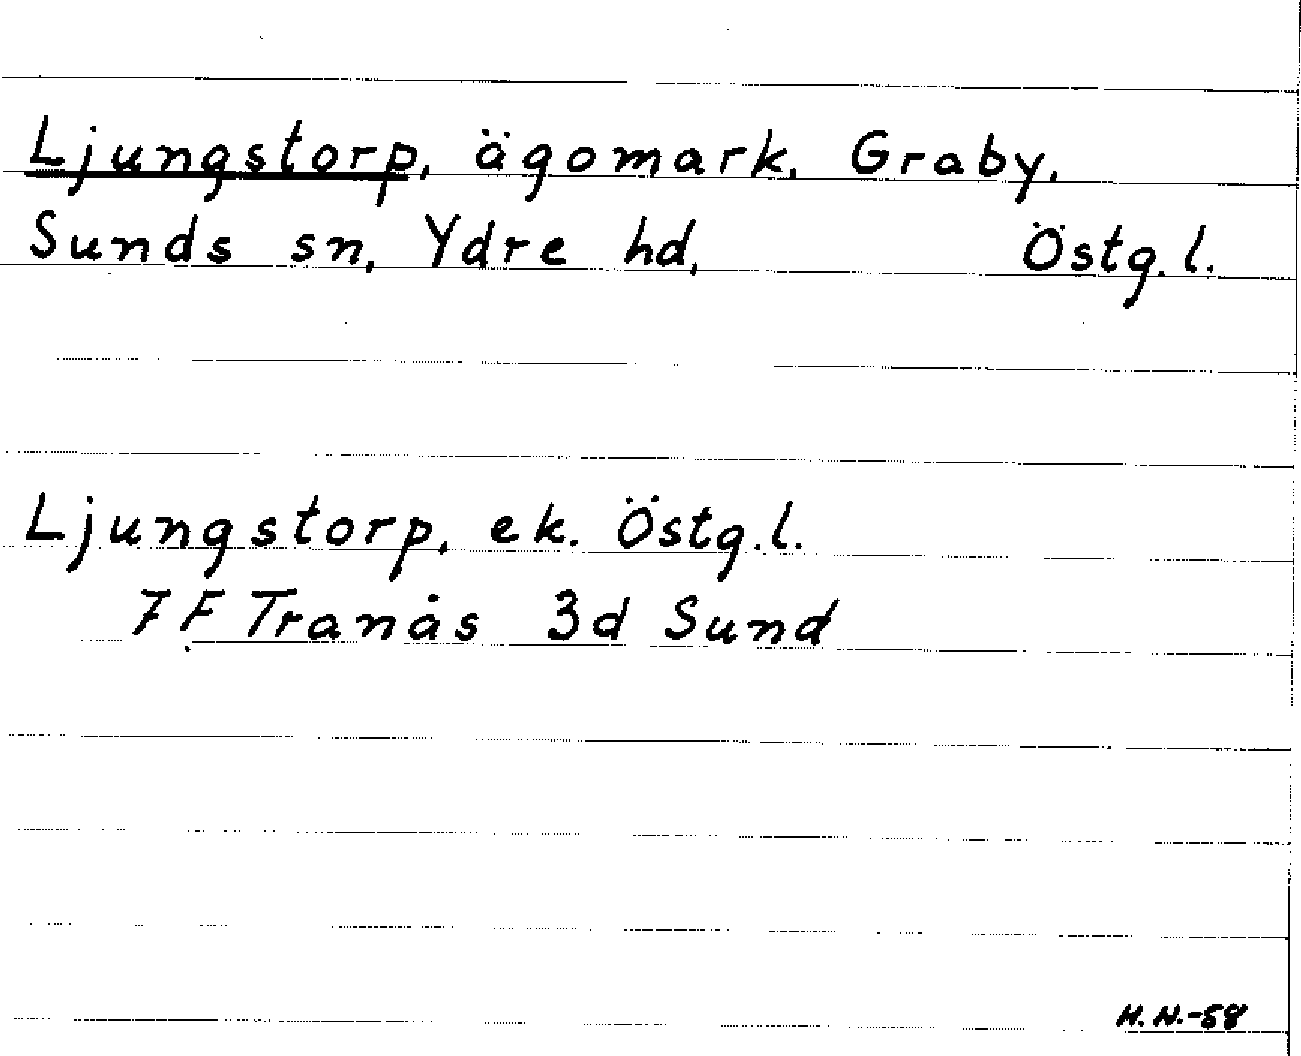 Ljungstorp, ägomark, Graby,
Sunds sn, Ydre hd, Östg. l.
Ljungstorp, ek. Östg. l.
7 F Tranås 3d Sund
H. N. -58